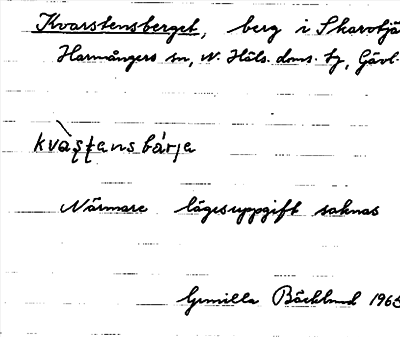 Kvarstensberget, berg i Skarvtjä
Harmångers sn, N. Häls. doms. tg, Gävl.
kvàʂʈansbárja
Närmare lägesuppgift saknas
Gunilla Bäcklund 1965